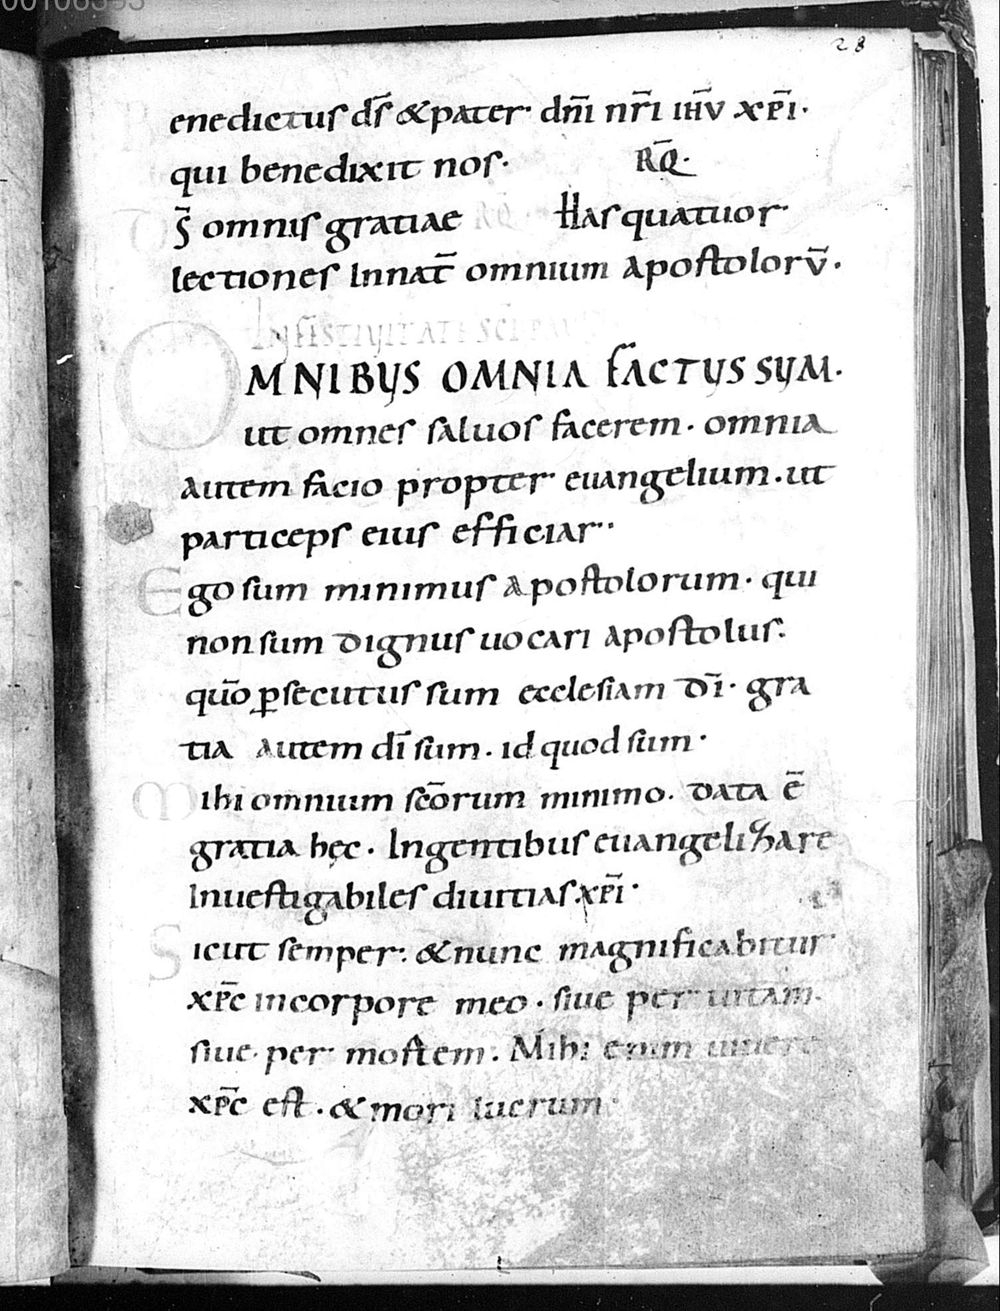 00106393
28
Benedictus ds̄ & pater dn̄i nr̄i ih̄u xp̄i.
qui benedixit nos. RQ̄.
Ds̄ omnis gratiae RQ. Has quatuor
lectiones In nat̄ omnium apostolorū.
IN FESTIVITATE SCI PAU
OMNIBUS OMNIA FACTUS SUM.
ut omnes saluos facerem. omnia
autem facio propter euangelium. ut
particeps eius efficiar.
Ego sum minimus apostolorum. qui
non sum dignus uocari apostolus.
quō ꝑsecutus sum ecclesiam dī. gra
tia autem dī sum. id quod sum.
Mihi omnium scōrum minimo. data ē
gratia hęc. In gentibus euangelizare
Inuestigabiles diuitias xp̄i.
Sicut semper: & nunc magnificabitur
xp̄c in corpore meo. siue per uitam.
siue per mortem. Mihi enim uiuere
xp̄c est. & mori lucrum.